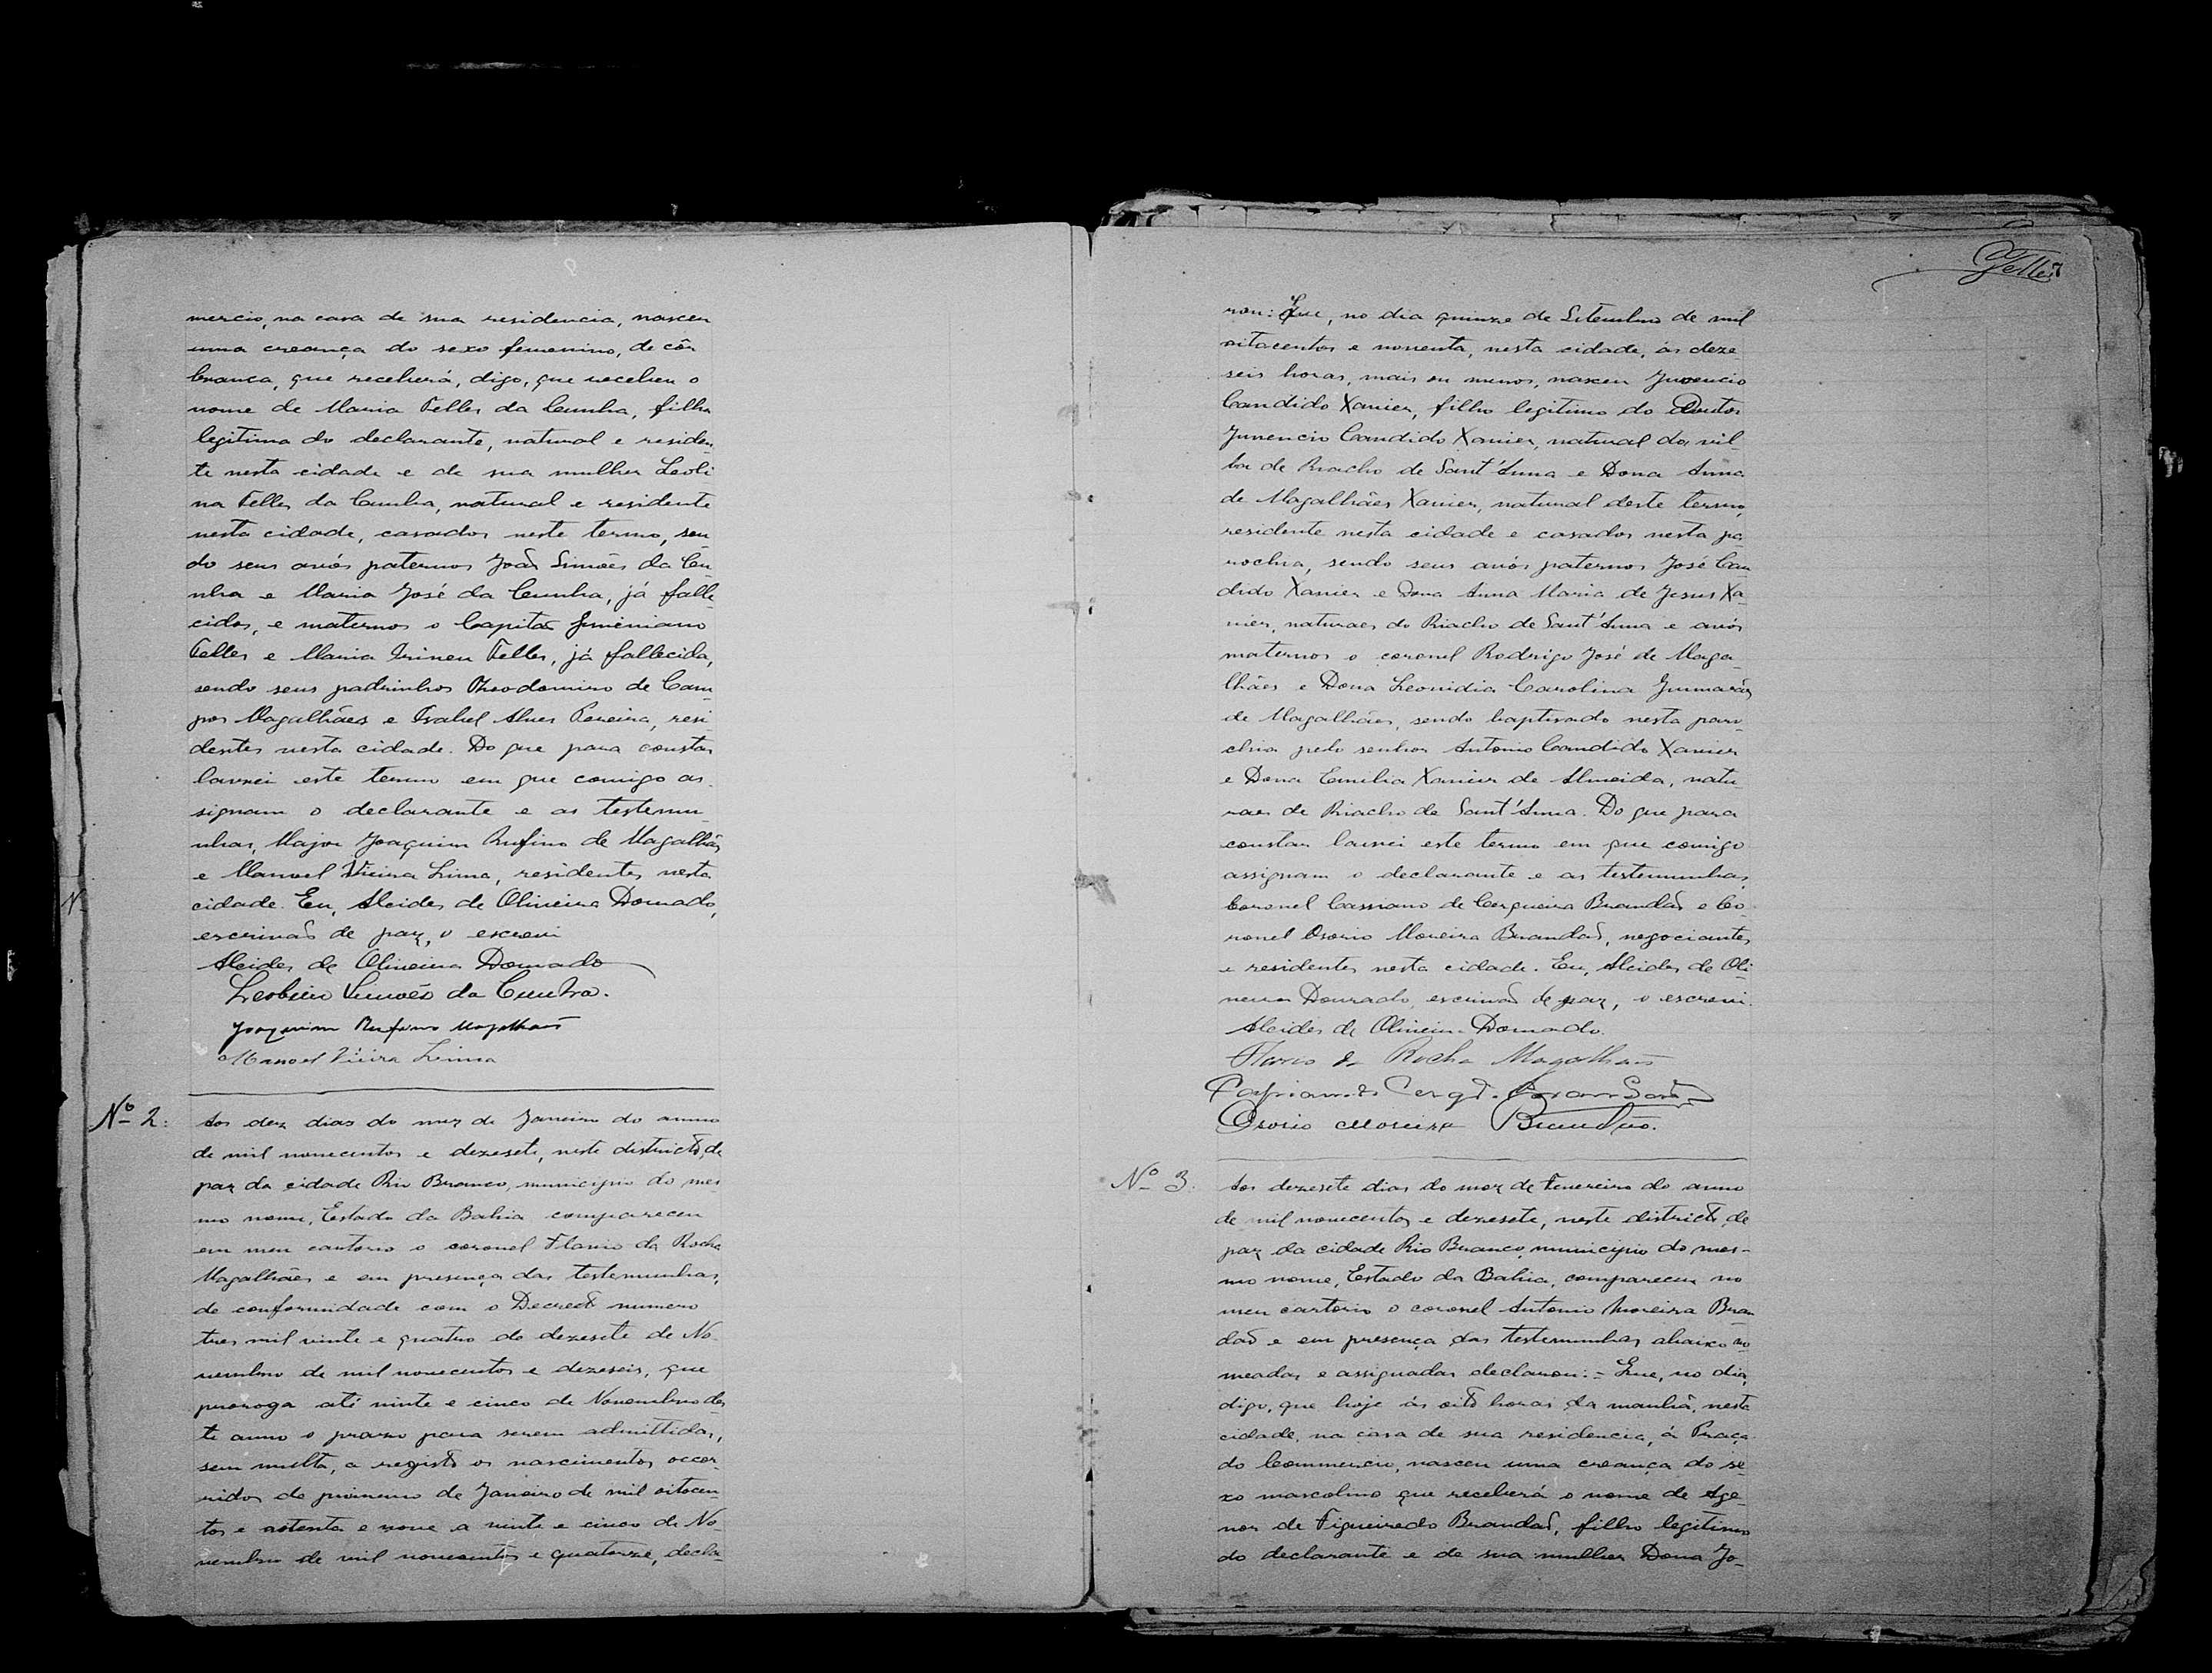 mercio, na casa de sua residencia, nasceu
uma creança do sexo femenino, de côr
branca, que receberá, digo, que recebeu o
nome de Maria Telles da Cunha, filha
legitima do declarante, natural e residen-
te nesta cidade e de sua mulher Leoli
na Telles da Cunha, natural e residente
nesta cidade, casados neste termo, sen-
do seus avós paternos João Simões da Cu-
nha e Maria José da Cunha, já falle-
cidos, e maternos o Capitão
Telles e Maria Irineu Telles, já fallecida,
sendo seus padrinhos Theodomiro de Cam-
pos Magalhães e Isabel Alves Pereira, resi-
dentes nesta cidade. Do que para constar
lavrei este termo em que comigo as-
signam o declarante e as testemu-
nhas, Major Joaquim Rufino de Magalhães
e Manoel Vieira Lima, residentes nesta
cidade. Eu, Alcides de Oliveira Dourado,
escrivão de paz, o escrevi
Alcides de Oliveira Dourado
Simões da Cunha.
Joaquim Rufino Magalhães
Manoel Vieira Lima
Nº 2.
Aos dez dias do mez de Janeiro do anno
de mil novecentos e dezesete, neste districto de
paz da cidade Rio Branco, municipio do mes-
mo nome, Estado da Bahia compareceu
em meu cartorio o coronel Flavio da Rocha
Magalhães e em presença das testemunhas,
de conformidade com o Decreto numero
tres mil vinte e quatro de dezesete de No-
vembro de mil novecentos e dezeseis, que
proroga até vinte e cinco de Novembro des-
te anno o praso para serem admittidos,
sem multa, a registo os nascimentos occor-
ridos de primeiro de Janeiro de mil oitocen-
tos e oitenta e nove a vinte e cinco de No-
vembro de mil novecentos e quatorze, decla-
Telles
7
rou: Que, no dia quinze de Setembro de mil
oitocentos e noventa, nesta cidade, ás deze-
seis horas, mais ou menos, nasceu Juvencio
Candido Xavier, filho legitimo do Doutor
Juvencio Candido Xavier, natural da vil-
la de Riacho de Sant'Anna e Dona Anna
de Magalhães Xavier, natural deste termo,
residente nesta cidade e casados nesta pa-
rochia, sendo seus avós paternos José Can-
dido Xavier e Dona Anna Maria de Jesus Xa-
vier, naturaes do Riacho de Sant'Anna e avós
maternos o coronel Rodrigo José de Maga-
lhães e Dona Leonidia Carolina Guimarães
de Magalhães, sendo baptisado nesta paro-
chia pelo senhor Antonio Candido Xavier
e Dona Emilia Xavier de Almeida, natu-
raes de Riacho de Sant'Anna. Do que para
constar lavrei este termo em que comigo
assignam o declarante e as testemunhas,
Coronel Cassiano de Cerqueira Brandão e Co-
ronel Osorio Moreira Brandão, negociantes
e residentes nesta cidade. Eu, Alcides de Oli-
veira Dourado, escrivão de paz, o escrevi.
Alcides de Oliveira Dourado.
Flavio da Rocha Magalhães
Cassiano de Cerqª. Brandão
Osorio Moreira Brandão.
Nº 3.
Aos dezesete dias do mez de Fevereiro do anno
de mil novecentos e dezesete, neste districto de
paz da cidade Rio Branco, municipio do mes-
mo nome, Estado da Bahia, compareceu no
meu cartorio o coronel Antonio Moreira Bran-
dão e em presença das testemunhas abaixo no-
meadas e assignadas declarou:- Que, no dia,
digo, que hoje ás oito horas da manhã, nesta
cidade, na casa de sua residencia, á Praça
do Commercio, nasceu uma creança do se-
xo mascolino que receberá o nome de Age-
nor de Figueiredo Brandão, filho legitimo
do declarante e de sua mulher Dona Jo-